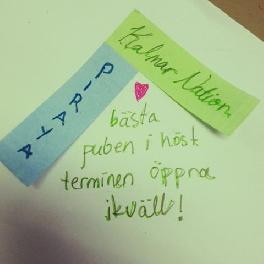 Kalmar Nation
PIRAYA
bästa
puben i höst
terminen öppna
ikväll!